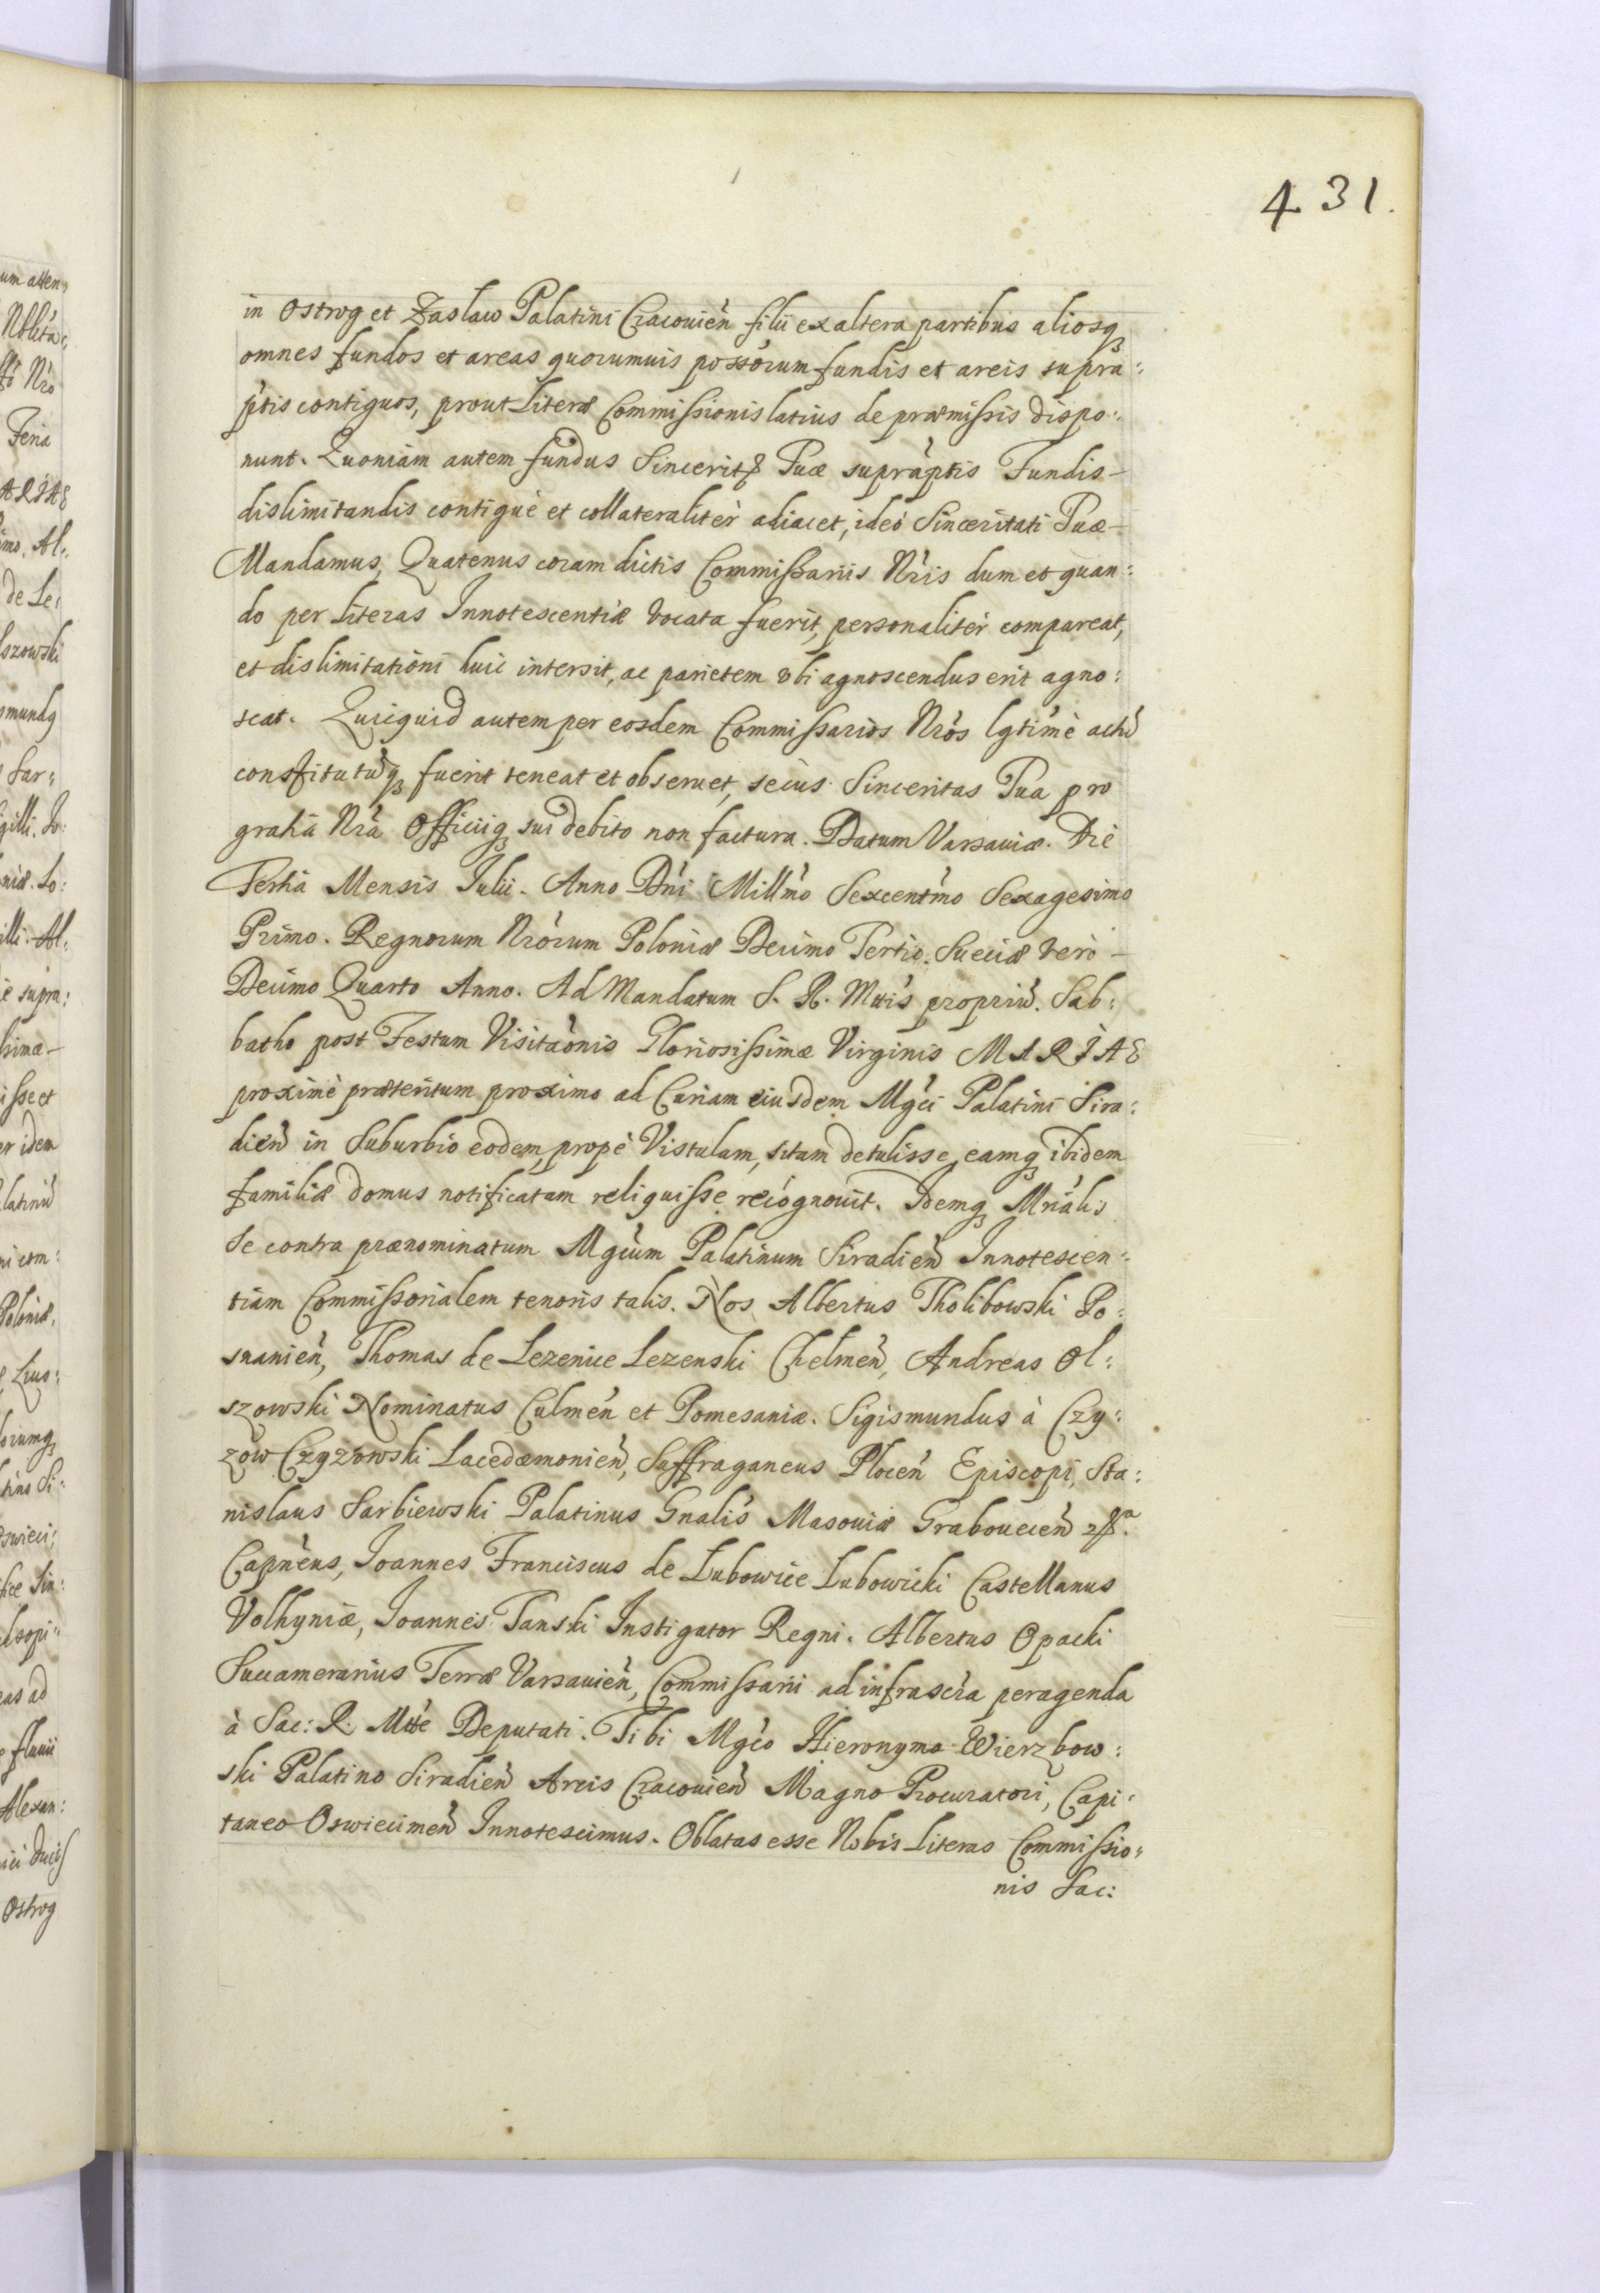 431.
in Ostrog et Zaslaw Palatini Cracouień filii ex altera partibus aliosq
omnes fundos et areas quorumuis possórum fundis et areis supra:
ptis contiguos, prout Literæ Commissionis latius de præmissis dispo:
nunt. Quoniam autem fundus Sincerit Tuæ supraptis Fundis–
dislimitandis contiguè et collateralitèr adiacet, ideó Sinceritati Tuæ–
Mandamus, Quatenus coram dictis Commissariis Nris dum et quan:
do per literas Innotescentiæ vocata fuerit, personalitèr compareat,
et dislimitationi huic intersit, ac parietem vbi agnoscendus erit agno:
scat. Quicquid autem per eosdem Commissarios Nrós lgtimè actũ
constitutũq fuerit teneat et obseruet, secus Sinceritas Tua pro
gratiã Nrã Officiiq sui debito non factura. Datum Varsauiæ. Die
Tertiâ Mensis Julii. Anno Dńi Millmo Sexcentmo Sexagesimo
Primo. Regnorum Nrórum Poloniæ Decimo Tertio. Sueciæ verò–
Decimo Quarto Anno. Ad Mandatum S. R. Mttis propriũ. Sab:
batho post Festum Visitaõnis Gloriosissimæ Virginis MARIAE
proximè præteritum proximo ad Curiam eiusdem Mgci Palatini Sira:
dień in Suburbio eodem, propè Vistulam, sitam detulisse, eamq ibidem
familiæ domus notificatam reliquisse recognouit. Idemq Mriális
Se contra prænominatum Mgcum Palatinum Siradień Innotescen:
tiam Commissorialem tenoris talis. Nos Albertus Tholibowski Po:
snanień, Thomas de Lezenice Lezenski Chelmeń, Andreas Ol:
szowski Nominatus Culmeń et Pomesaniæ. Sigismundus à Czy:
zow Czyzowski Lacedæmonień, Suffraganeus Ploceń Episcopi, Sta:
nislaus Sarbiewski Palatinus Gnalis Masouiæ Graboueceń
Capneus, Joannes Franciscus de Lubowice Lubowicki Castellanus
Volhyniæ, Joannes Tanski Instigator Regni. Albertus Opacki
Succamerarius Terræ Varsauień, Commissarii ad infrascra peragenda
à Sac: R. Mtte Deputati. Tibi Mgco Hieronymo Wierzbow:
ski Palatino Siradień Arcis Cracouień Magno Procuratori, Capi:
taneo Oswiecimeń Innotescimus. Oblatas esse Nobis Literas Commissio:
nis Sac: